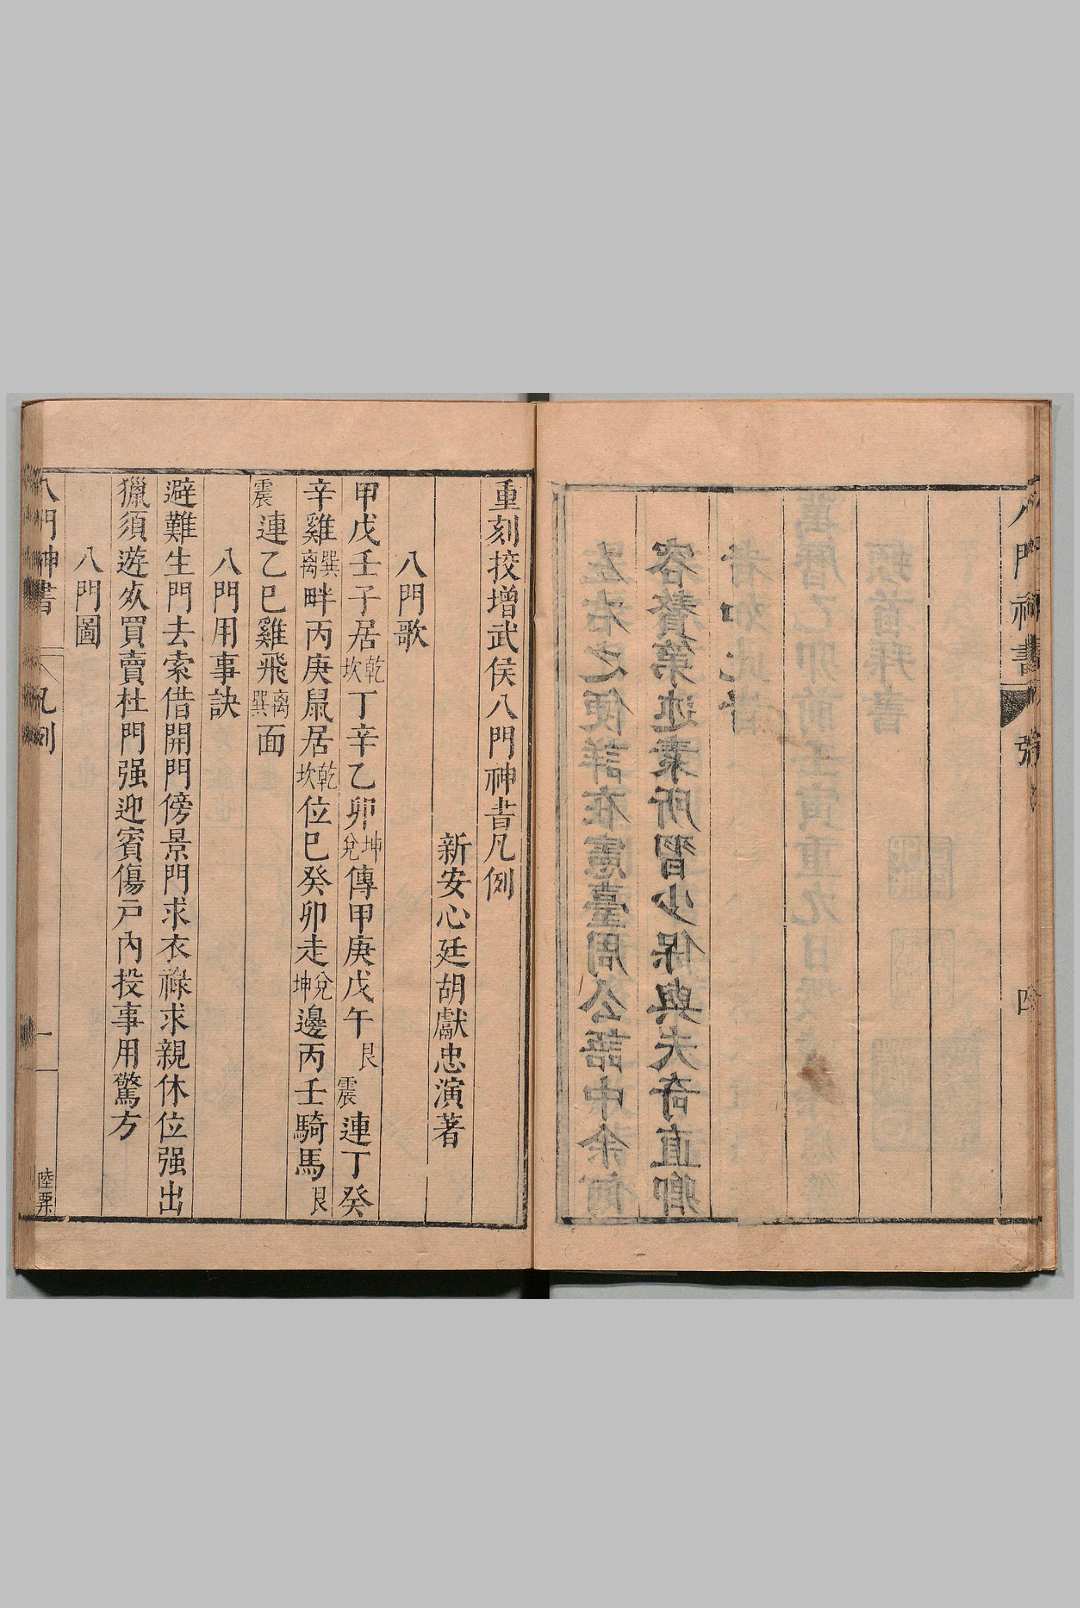 八門神書 四
左右之便詳在憲臺周公語中余何
容贅第述素所習少保與夫奇直卿
者如此
頓首拜書
重刻挍增武侯八門神書凡例
新安心廷胡獻忠演著
八門歌
甲戊壬子居乾坎丁辛乙卯坤兌傳甲庚戊午艮震連丁癸
辛雞巽离畔丙庚鼠居乾坎位巳癸卯走兌坤邊丙壬騎馬艮
震連乙巳雞飛离巽面
八門用事訣
避難生門去索借開門傍景門求衣祿求親休位强出
獵須遊㸔買賣杜門强迎賓傷戸內投事用驚方
八門圖
八門神書 凡例 一 陸